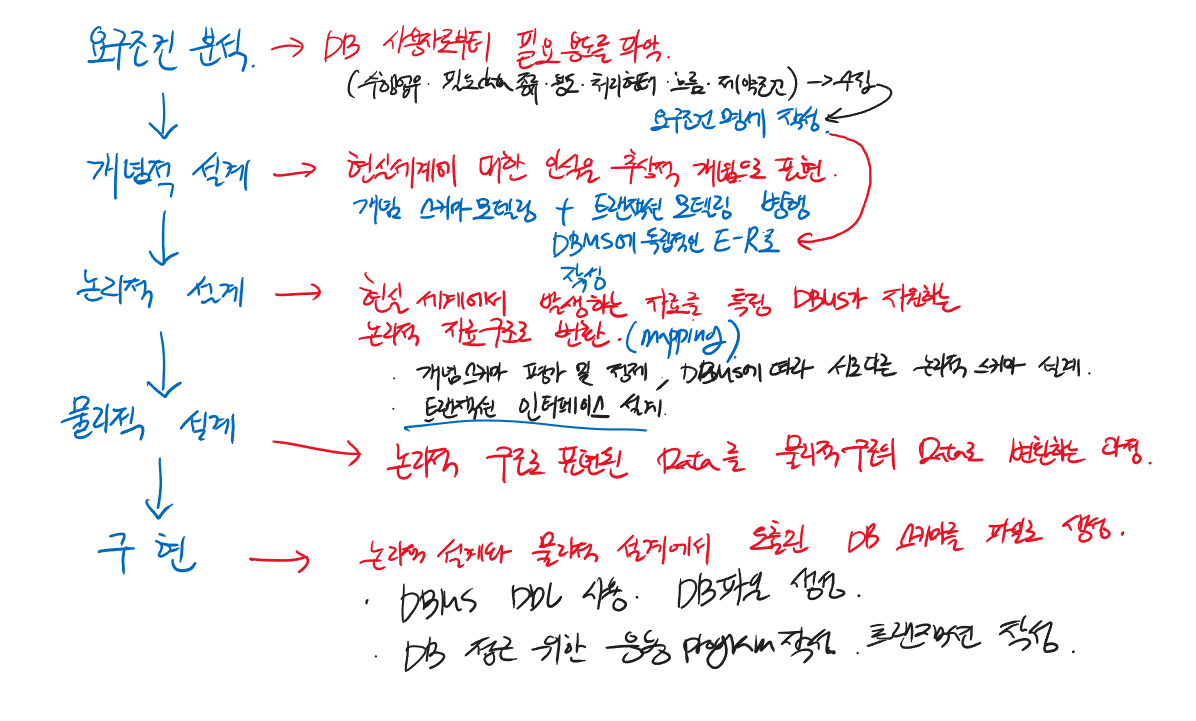 요구조건 분석. → DB 사용자로부터 필요 용도를 파악.
(수행업무 · 필요data종류 · 용도 · 처리형태 · 흐름 · 제약조건) → 수집
요구조건 명세 작성.
개념적 설계 → 현실세계에 대한 인식을 추상적 개념으로 표현.
개념 스키마모델링 + 트랜잭션 모델링 병행
DBMS에 독립적인 E-R로
작성
논리적 설계 → 현실 세계에서 발생하는 자료를 특정 DBMS가 지원하는
논리적 자료구조로 변환. (mapping)
· 개념스키마 평가 및 정제, DBMS에 따라 서로다른 논리적 스키마 설계.
· 트랜잭션 인터페이스 설계.
물리적 설계 → 논리적 구조로 표현된 Data를 물리적구조의 Data로 변환하는 과정.
구현 → 논리적 설계와 물리적 설계에서 도출된 DB 스키마를 파일로 생성.
· DBMS DDL 사용. DB파일 생성.
· DB 접근 위한 응용 program작성. 트랜잭션 작성.